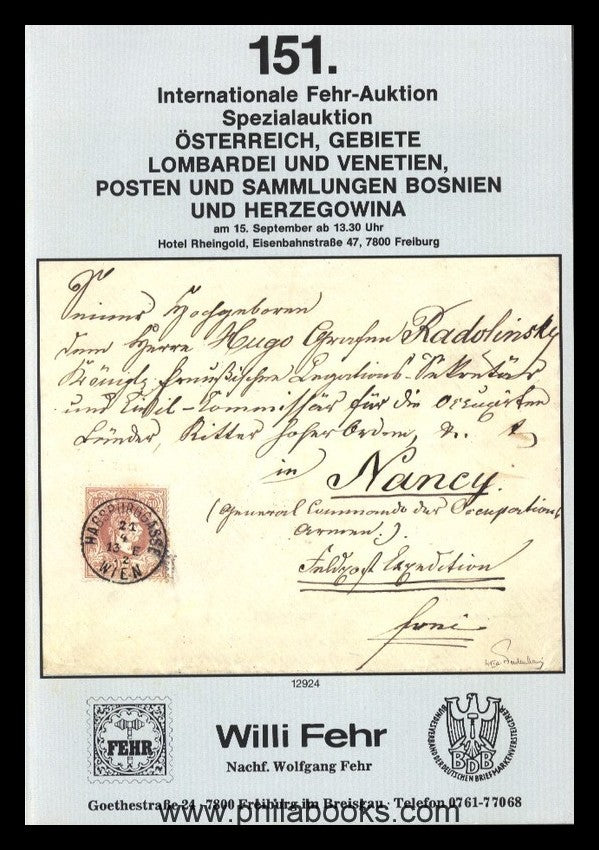 151.
Internationale Fehr-Auktion
Spezialauktion
ÖSTERREICH, GEBIETE
LOMBARDEI UND VENETIEN,
POSTEN UND SAMMLUNGEN BOSNIEN
UND HERZEGOWINA
am 15. September ab 13.30 Uhr
Hotel Rheingold, Eisenbahnstraße 47, 7800 Freiburg
Seiner Hochgeboren
dem Herrn Hugo Grafen Radolinsky
Königlg Preußischen Legations-Sekretär
und Civil-Commissär für die Occupirten
Länder, Ritter hoher Orden,
in Nancy.
(General Commando der Occupations
Armen.)
Feldpost Expedition
frei
HABSBURGGASSE
WIEN
12924
FEHR
Willi Fehr
Nachf. Wolfgang Fehr
BUNDESVERBAND DER DEUTSCHEN BRIEFMARKENVERSTEIGERER
BDB
Goethestraße 24 · 7800 Freiburg im Breisgau · Telefon 0761-77068
www.philabooks.com